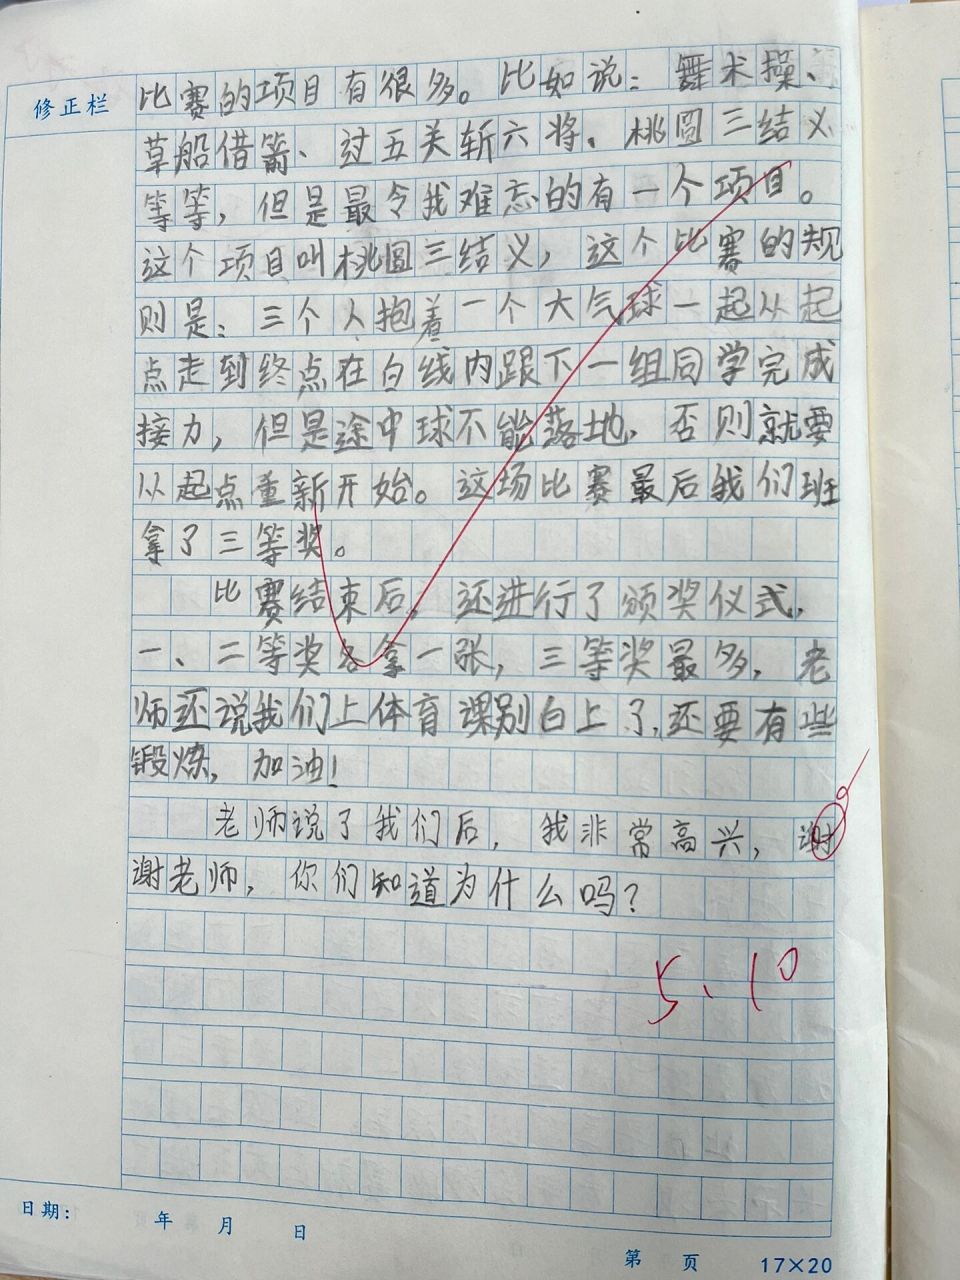 修正栏
比赛的项目有很多。比如说：舞术操、
草船借箭、过五关斩六将、桃圆三结义
等等，但是最令我难忘的有一个项目。
这个项目叫桃圆三结义，这个比赛的规
则是：三个人抱着一个大气球一起从起
点走到终点在白线内跟下一组同学完成
接力，但是途中球不能落地，否则就要
从起点重新开始。这场比赛最后我们班
拿了三等奖。
比赛结束后，还进行了颁奖仪式，
一、二等奖各拿一张，三等奖最多，老
师还说我们上体育课别白上了，还要有些
锻炼，加油！
老师说了我们后，我非常高兴，谢
谢老师，你们知道为什么吗？
5、10
日期： 年 月 日
第 页 17×20